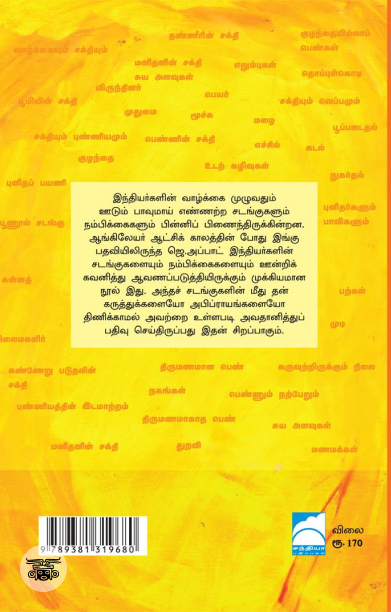 தண்ணீரின் சக்தி
குழந்தையில்லாப்
பெண்கள்
வாழ்க்கையும் சக்தியும்
மனிதனின் சக்தி
எலும்புகள்
சுய அளவுகள்
தொப்புள்கொடி
விருந்தினர்
பெயர்
பூமியின் சக்தி
சக்தியும் வெப்பமும்
முதுமை
மூச்சு
மழை
பூப்படைதல்
சக்தியும் புண்ணியமும்
பெண்ணின் சக்தி
எச்சில்
கடல்
குழந்தை
உடற் கழிவுகள்
நுகர்தல்
புனிதப் பயணி
இந்தியர்களின் வாழ்க்கை முழுவதும்
ஊடும் பாவுமாய் எண்ணற்ற சடங்குகளும்
நம்பிக்கைகளும் பின்னிப் பிணைந்திருக்கின்றன.
ஆங்கிலேயர் ஆட்சிக் காலத்தின் போது இங்கு
பதவியிலிருந்த ஜெ.அப்பாட் இந்தியர்களின்
சடங்குகளையும் நம்பிக்கைகளையும் ஊன்றிக்
கவனித்து ஆவணப்படுத்தியிருக்கும் முக்கியமான
நூல் இது. அந்தச் சடங்குகளின் மீது தன்
கருத்துக்களையோ அபிப்ராயங்களையோ
திணிக்காமல் அவற்றை உள்ளபடி அவதானித்துப்
பதிவு செய்திருப்பது இதன் சிறப்பாகும்.
புனிதர்களும்
பாவிகளும்
பூணூல் சடங்கு
பற்கள்
முடி
கண்ணேறு படுதலின்
சக்தி
திருமணமான பெண்
கருவுற்றிருக்கும் நிலை
நகங்கள்
பெண்ணும் நற்பேறும்
புண்ணியத்தின் இடமாற்றம்
திருமணமாகாத பெண்
சுய அளவுகள்
மனிதனின் சக்தி
துறவி
மணமக்கள்
9 789381 319680
சந்தியா
பதிப்பகம்
விலை
ரூ. 170